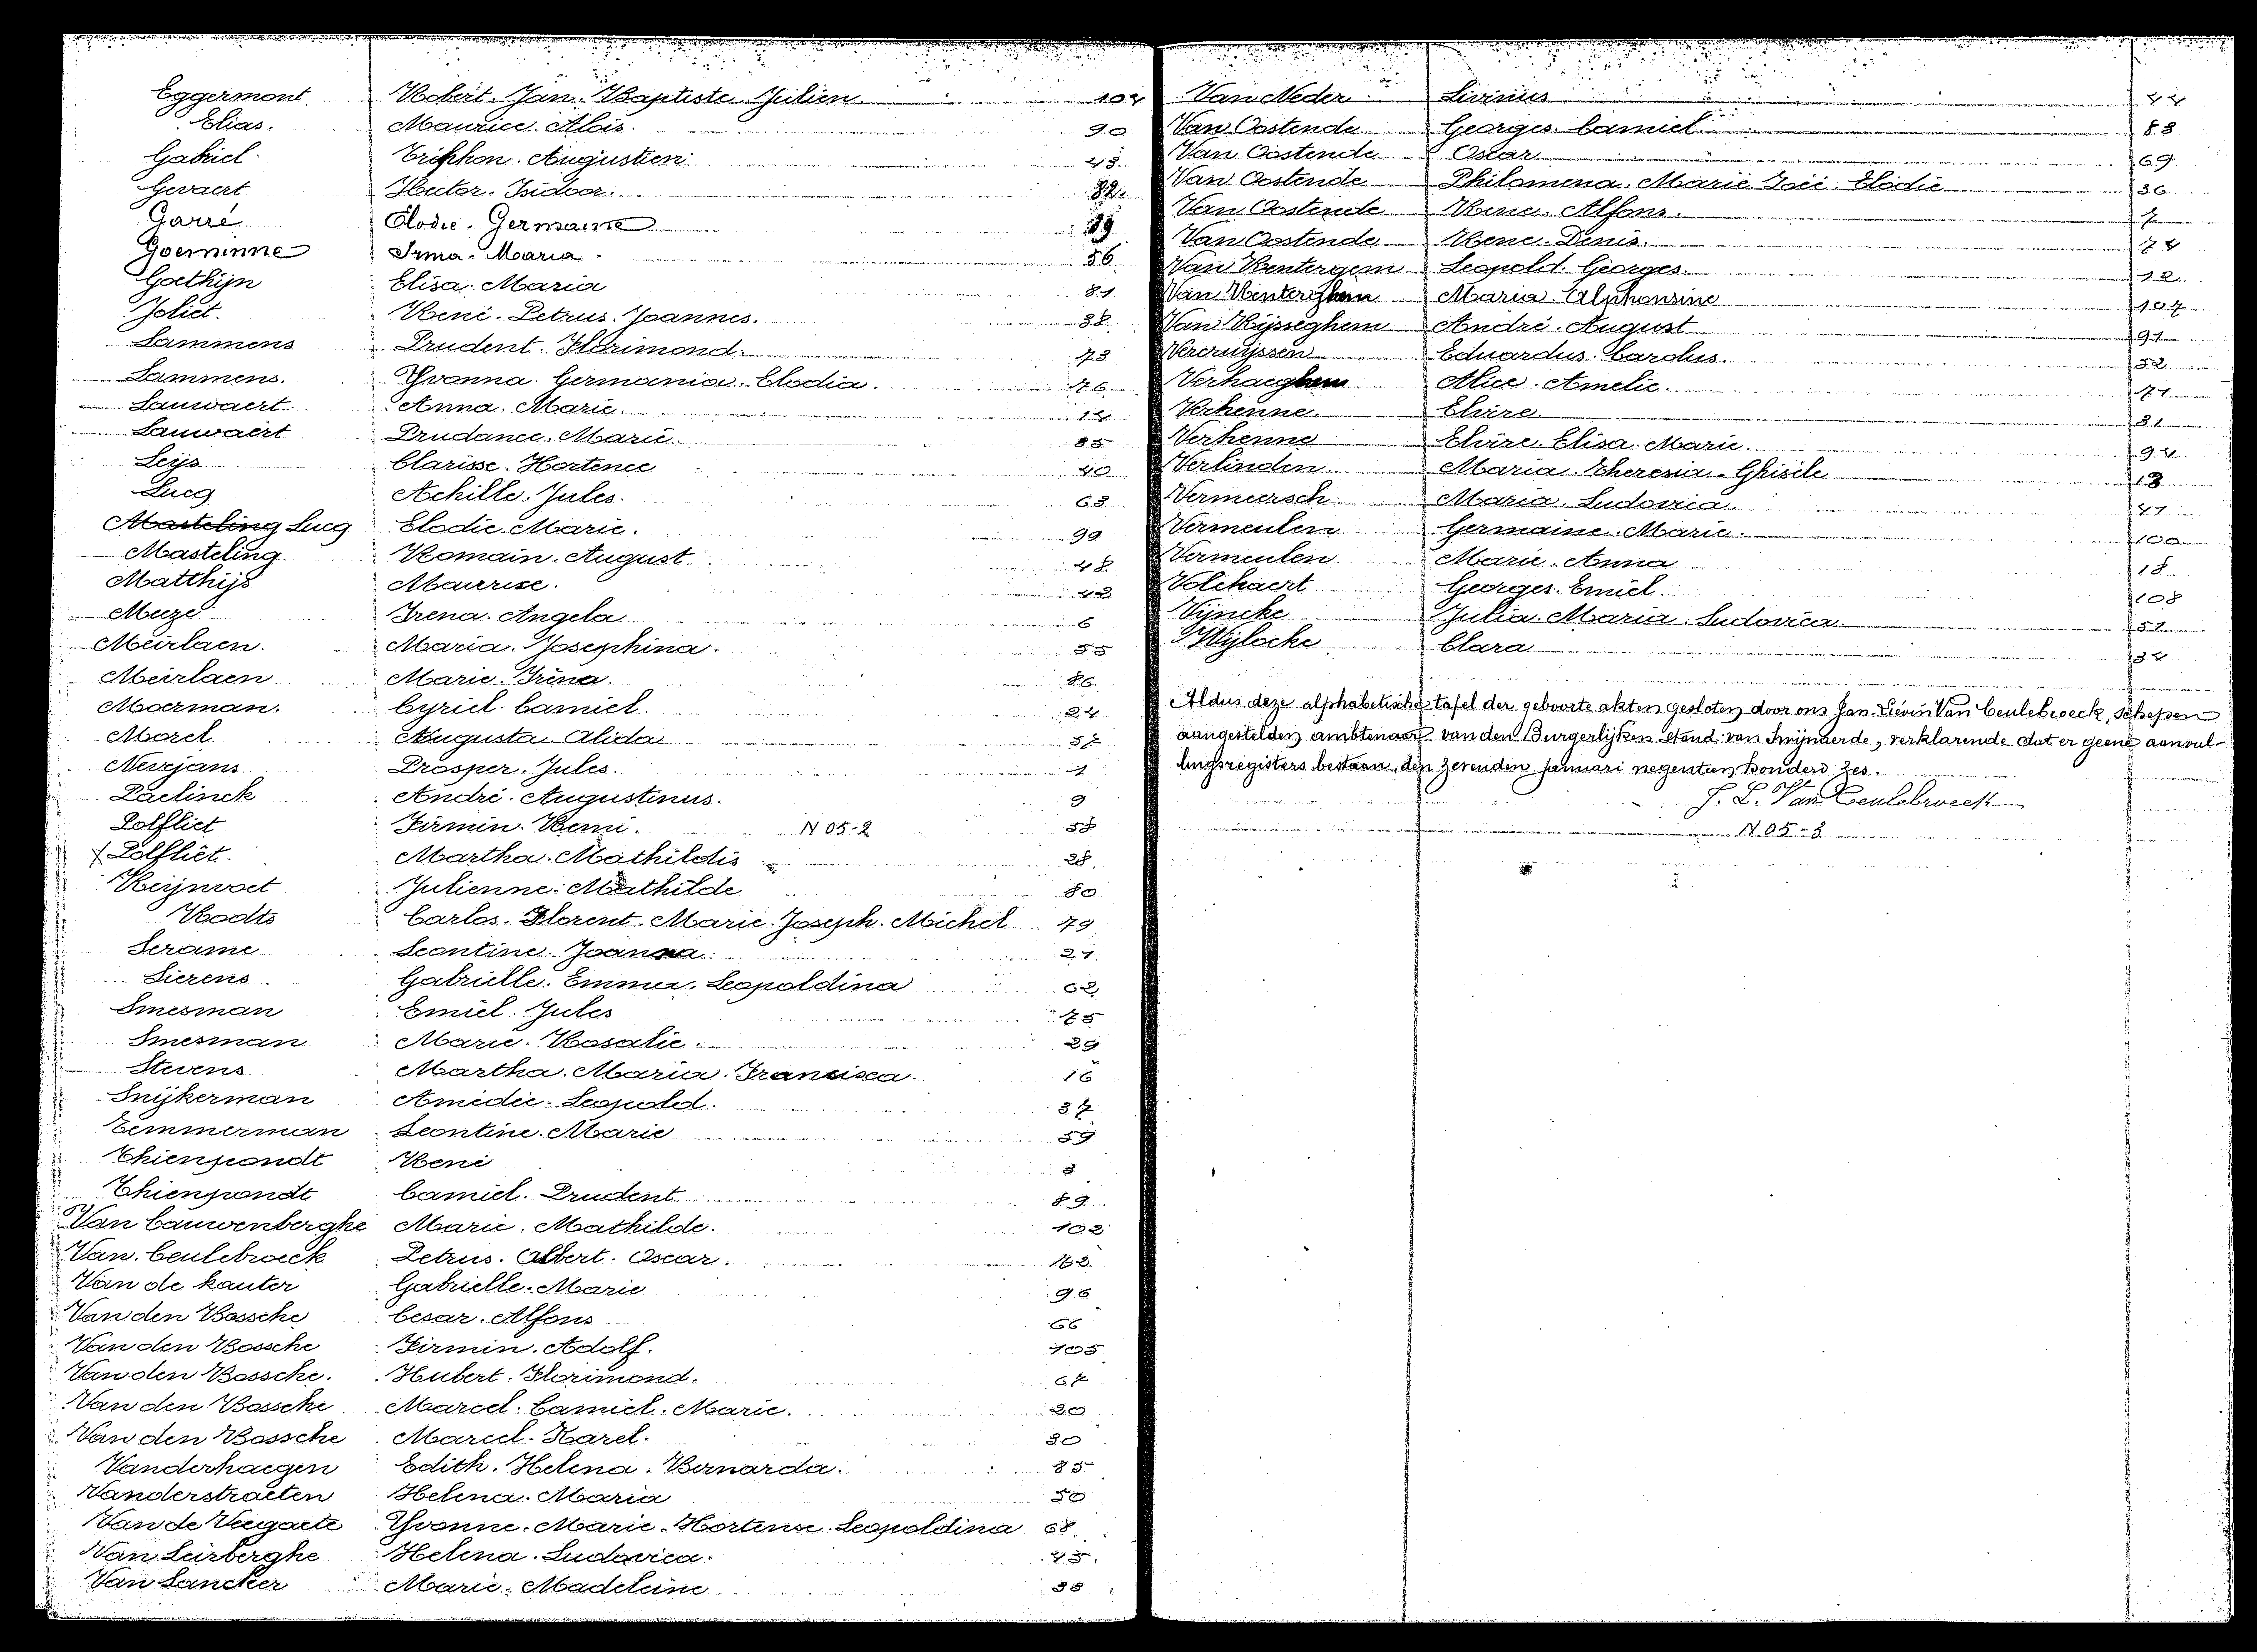 Eggermont Robert. Jan. Baptiste. Julien 104
Elias. Maurice. Aloïs. 90
Gabriel. Triphon. Augustien 45
Gevaert Hector. Isidoor. 32
Garré Elodie. Germaine 39
Goeminne Irma. Maria. 56
Goethijn Elisa. Maria 81
Joliet. René. Petrus. Joannes. 38
Lammens Prudent. Florimond. 73
Lammens. Yvonna. Germania. Elodia. 76
Lauwaert. Anna. Marie. 14
Lauwaert Prudance. Marie. 85
Leijs Clarisse. Hortence 40
Lucq Achille. Jules. 63
Masteling Lucq Elodie. Marie. 99
Masteling Romain. August 48
Matthijs Maurise. 42
Meeze Irena. Angela 6
Meirlaen. Maria. Josephina. 55
Meirlaen Marie. Irèna. 86
Moerman. Cyriel. Camiel. 24
Morel Augusta. Alida 57
Nevejans Prosper. Jules. 1
Paelinck André. Augustinus. 9
Polfliet Firmin. Remi. N 05-2 58
Polfliet. Martha. Mathildis 28
Reijnvoet Julienne. Mathilde 80
Roodts Carlos. Florent. Marie. Joseph. Michel 79
Serame Leontine. Joanna. 21
Sierens. Gabriëlle. Emma. Leopoldina 62
Smesman Emiel. Jules 75
Smesman Marie. Rosalie. 29
Stevens Martha. Maria. Francisca. 16
Snijkerman Amedée. Leopold. 37
Temmerman Leontine. Marie. 59
Thienpondt René 3
Thienpondt Camiel. Prudent. 89
Van Cauwenberghe Marie. Mathilde. 102
Van Ceulebroeck Petrus. Albert. Oscar. 103
Van de kauter Gabrielle. Marie 96
Van den Bossche Cesar. Alfons 66
Van den Bossche Firmin. Adolf. 105
Van den Bossche. Hubert. Florimond. 67
Van den Bossche Marcel. Camiel. Marie. 20
Van den Bossche Marcel. Karel. 30
Vanderhaegen Edith. Helena. Bernarda. 83
Vanderstraeten Helena. Maria 50
Van de Veegaete Yvonne. Marie. Hortense. Leopoldina 68
Van Leirberghe Helena. Ludovica. 45.
Van Lancker Marie. Madeleine 33
Van Neder Livinus 44
Van Oostende Georges. Camiel. 88
Van Oostende Oscar 69
Van Oostende Philomena. Marie. Zoé. Elodie 36
Van Oostende Rene. Alfons. 7
Van Oostende Rene. Denis. 74
Van Rentergem Leopold. Georges. 12
Van Renterghem Maria. Alphonsine 107
Van Rijsseghem André. August 91
Vercruijssen Eduardus. Carolus. 52
Verhaeghem Alice. Amelie. 71
Verhenne. Elvire. 31
Verhenne Elvire. Elisa. Marie. 94
Verlinden. Maria. Theresia. Ghisile 13
Vermeersch Maria. Ludovica. 47
Vermeulen Germaine. Marie. 100
Vermeulen Marie. Anna 18
Volckaert Georges. Emiel. 108
Vijncke Julia. Maria. Ludovica 51
Wijlocke Clara 34
Aldus deze alphabetische tafel der geboorte akten gesloten door ons Jan Lievin Van Ceulebroeck, schepen
aangestelden ambtenaar van den Burgerlijken Stand van Swijnaerde, verklarende dat er geene aanvul-
lingsregisters bestaan, den zevenden januari negentien honderd zes.
J. L. Van Ceulebroeck
N 05-3